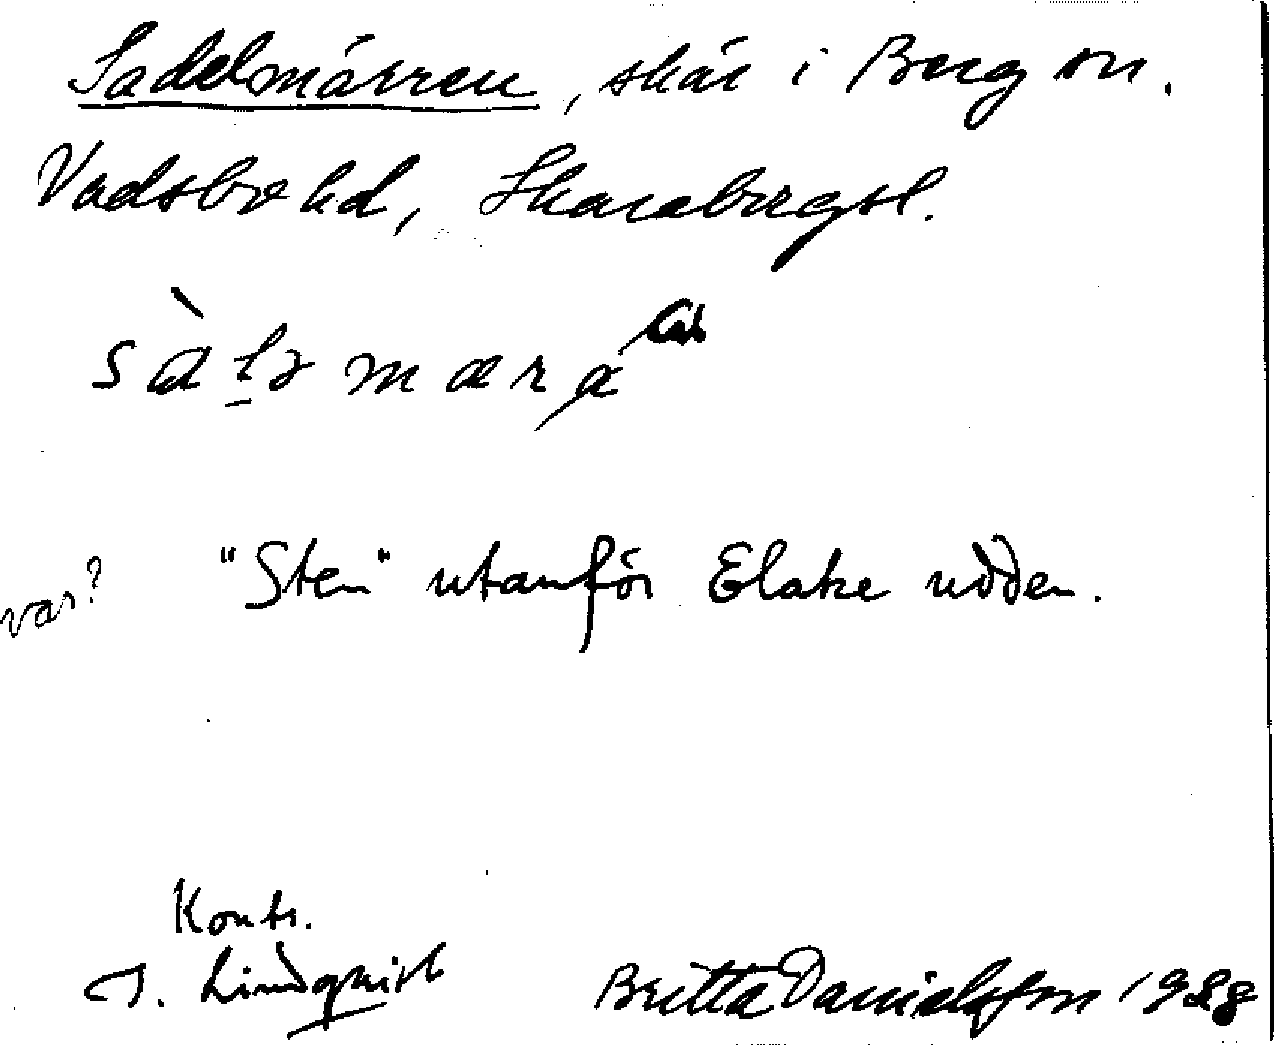 Sadelmärren, skär i Berg sn.
Vadsbo hd, Skaraborgsl.
"Sten" utanför Elake udden.
var?
Kontr.
J. Lindqvist
Britta Danielsson 1928